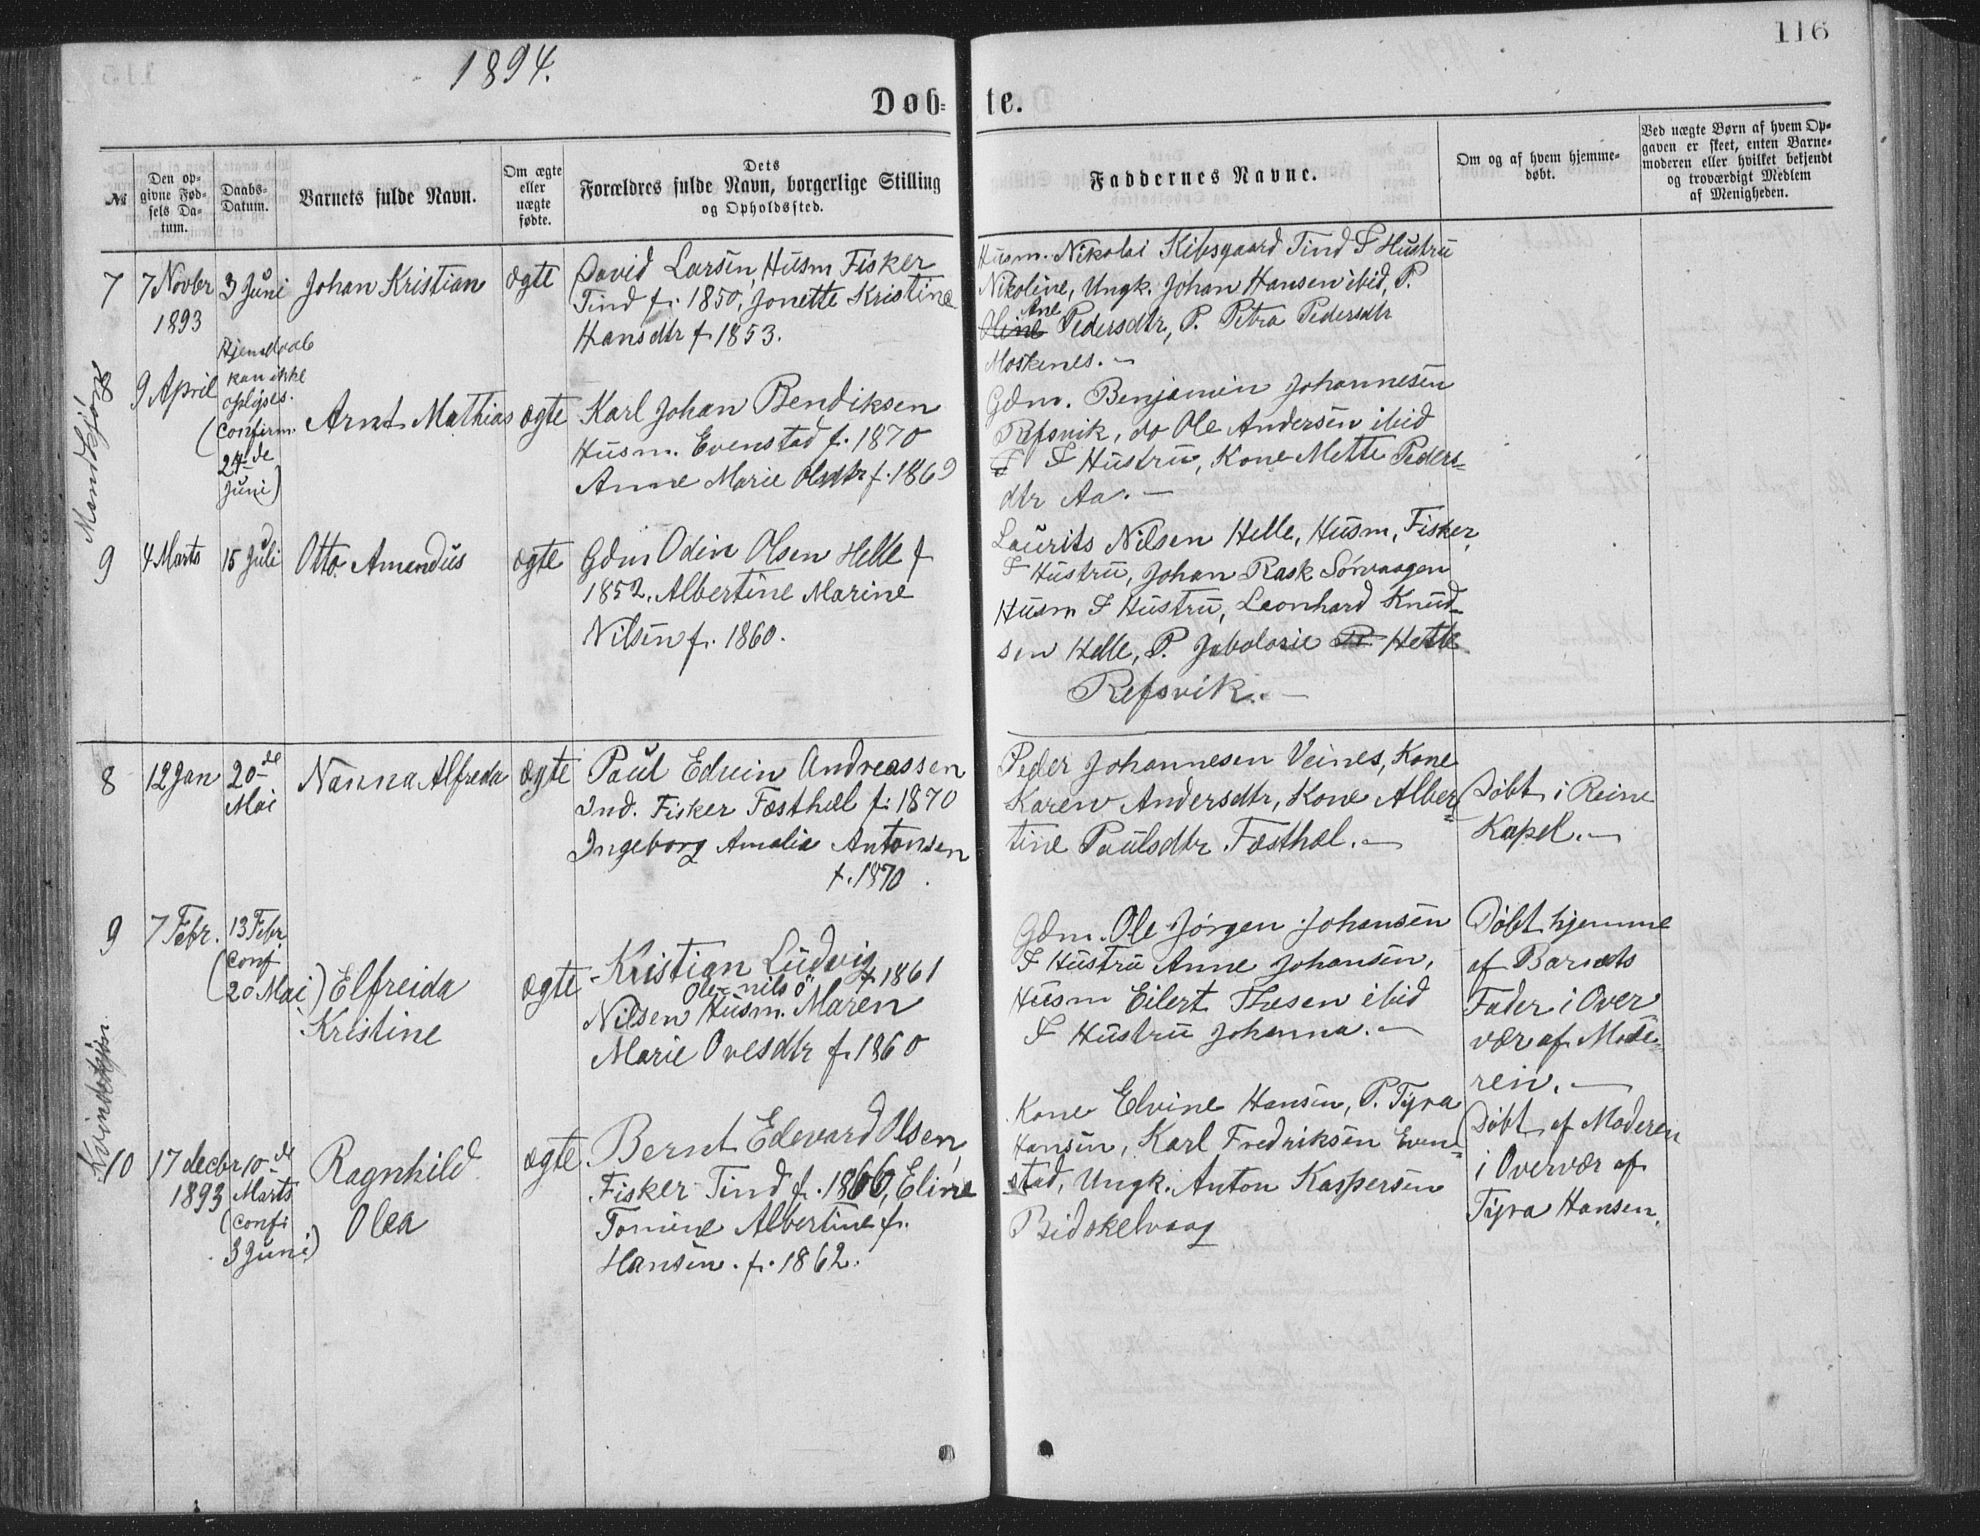 116
1894.
Døb-
te.
№
Den op-
givne Fød-
sels Da-
tum.
Daabs-
Datum.
Barnets fulde Navn.
Om ægte
eller
uægte
fødte.
Dets
Forældres fulde Navn, borgerlige Stilling
og Opholdssted.
Faddernes Navne.
Om og af hvem hjemme-
døbt.
Ved uægte Børn af hvem Op-
gaven er skeet, enten Barne-
moderen eller hvilket bekjendt
og troværdigt Medlem
af Menigheden.
Mandkjøn
7
7 Novbr
1893
3 Juni
Johan Kristian
ægte
David Larsen, Husm Fisker
Tind f. 1850, Jonette Kristine
Hansdtr f 1853.
Husm. Nikolai Kibsgaard Tind & Hustru
Nikoline, Ungk. Johan Hansen ibid, P.
Ane
Oline Pedersdtr, P. Petra Pedersdtr
Moskenes. —
8
9 April
Hjemdaab
kan ikke
oplyses.
(Confirm.
24de
Juni)
Arnt Mathias
ægte
Karl Johan Bendiksen
Husm. Evenstad f. 1870
Anne Marie Olsdtr f. 1869
Gdm. Benjamin Johannesen
Refsvik, do Ole Andersen ibid
& Hustru, Kone Mette Peders-
dtr Aa. —
9
4 Marts
15 Juli
Otto Amandus
ægte
Gdm Odin Olsen Helle f
1852. Albertine Marine
Nilsen f. 1860.
Laurits Nilsen Helle, Husm, Fisker,
& Hustru, Johan Rask Sørvaagen
Husm & Hustru, Leonhard Knud-
sen Helle, P. Helle
Refsvik. —
Kvindekjøn
8
12 Jan
20de
Mai
Nanna Alfreda
ægte
Paul Edvin Andreassen
Ind. Fisker Fæsthæl f. 1870
Ingeborg Amalia Antonsen
f. 1870.
Peder Johannesen Veines, Kone
Karen Andersdtr, Kone Alber-
tine Paulsdtr Fæsthæl. —
Døbt i Reine
Kapel. —
9
7 Febr.
13 Febr
(conf
20 Mai)
Elfreida
Kristine
ægte
Kristian Ludvig
Olenilsø f 1861
Nilsen Husm. Maren
Marie Ovesdtr f. 1860
Gdm. Ole Jørgen Johansen
& Hustru Anne Johansen,
Husm Eilert Thesen ibid
& Hustru Johanna. —
Døbt hjemme
af Barnets
Fader i Over
vær af Mode-
ren. —
10
17 decbr
1893
10de
Marts
(confi
3 Juni)
Ragnhild
Olea
ægte
Bernt Edevard Olsen,
Fisker Tind f. 1866, Eline
Tomine Albertine f.
Hansen. f. 1862.
Kone Elvine Hansen, P. Tyra
Hansen, Karl Fredriksen Even-
stad, Ungk. Anton Kaspersen
Bidskelvaag
Døbt af Moderen
i Overvær af
Tyra Hansen.